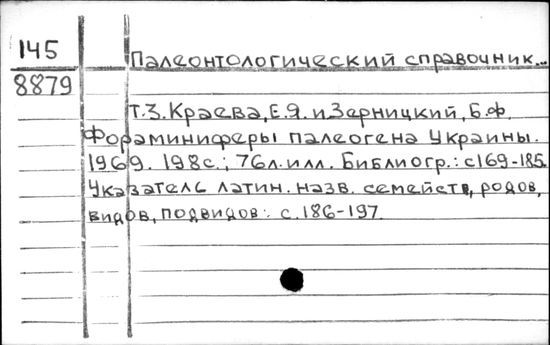 145
Палеонтологический справочник...
8879
Т.3. Краева, Е.Я. и Зерницкий, Б.Ф.
Фораминиферы палеогена Украины.
1969. 198с.; 76л.илл. Библиогр.: с169-185.
Указатель латин. назв. семейств, родов,
видов, подвидов: с.186-197